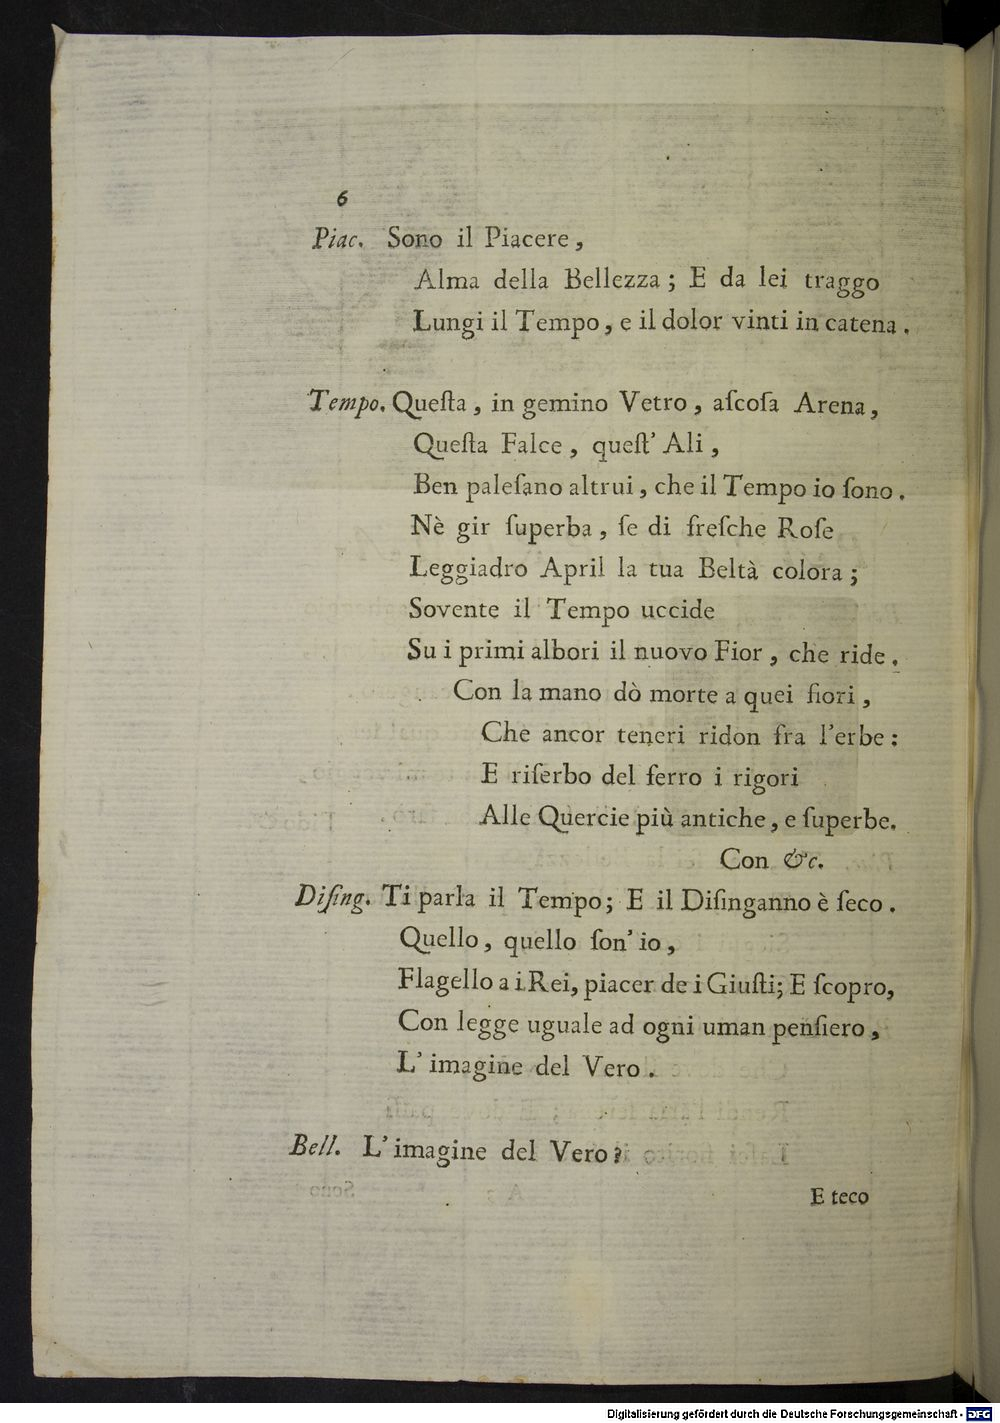 6
Piac. Sono il Piacere,
Alma della Bellezza; E da lei traggo
Lungi il Tempo, e il dolor vinti in catena.
Tempo. Queſta, in gemino Vetro, aſcoſa Arena,
Queſta Falce, queſt' Ali,
Ben paleſano altrui, che il Tempo io ſono.
Nè gir ſuperba, ſe di freſche Roſe
Leggiadro April la tua Beltà colora;
Sovente il Tempo uccide
Su i primi albori il nuovo Fior, che ride.
Con la mano dò morte a quei fiori,
Che ancor teneri ridon fra l'erbe:
E riſerbo del ferro i rigori
Alle Quercie più antiche, e ſuperbe.
Con &c.
Diſing. Ti parla il Tempo; E il Diſinganno è ſeco.
Quello, quello ſon' io,
Flagello a i Rei, piacer de i Giuſti; E ſcopro,
Con legge uguale ad ogni uman penſiero,
L' imagine del Vero.
Bell. L' imagine del Vero?
E teco
Digitalisierung gefördert durch die Deutsche Forschungsgemeinschaft - DFG